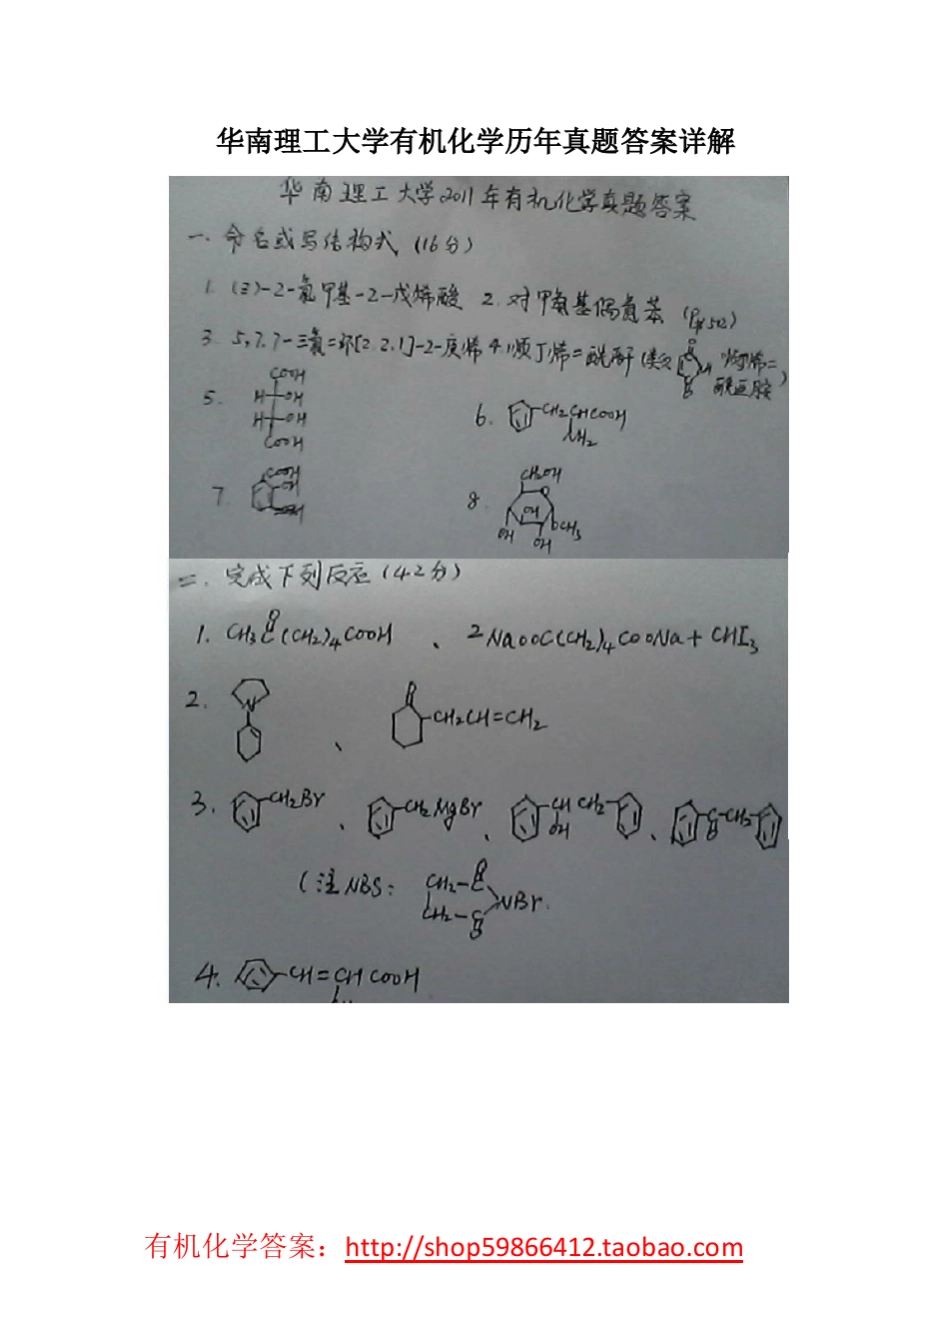 华南理工大学有机化学历年真题答案详解
华南理工大学2011年有机化学真题答案
一、命名或写结构式 (16分)
1. (Z)-2-氯甲基-2-戊烯酸 2. 对甲氨基偶氮苯 (P502)
3. 5,7,7-三氯二环[2.2.1]-2-庚烯 4. 顺丁烯二酸酐
5. COOH
H OH
H OH
COOH
6. CH2CHCOOH
NH2
7. COOH
OH
8. CH2OH
O
OH
OCH3
OH OH
二、完成下列反应 (42分)
1. CH3C(CH2)4COOH 、 2 NaOOC(CH2)4COONa + CHI3
O
2. N 、 O CH2CH=CH2
3. CH2Br 、 CH2MgBr 、 CH CH2 、 C-CH2
OH O
(注NBS: CH2-C NBr.
CH2-C
4. CH=CHCOOH
有机化学答案：http://shop59866412.taobao.com